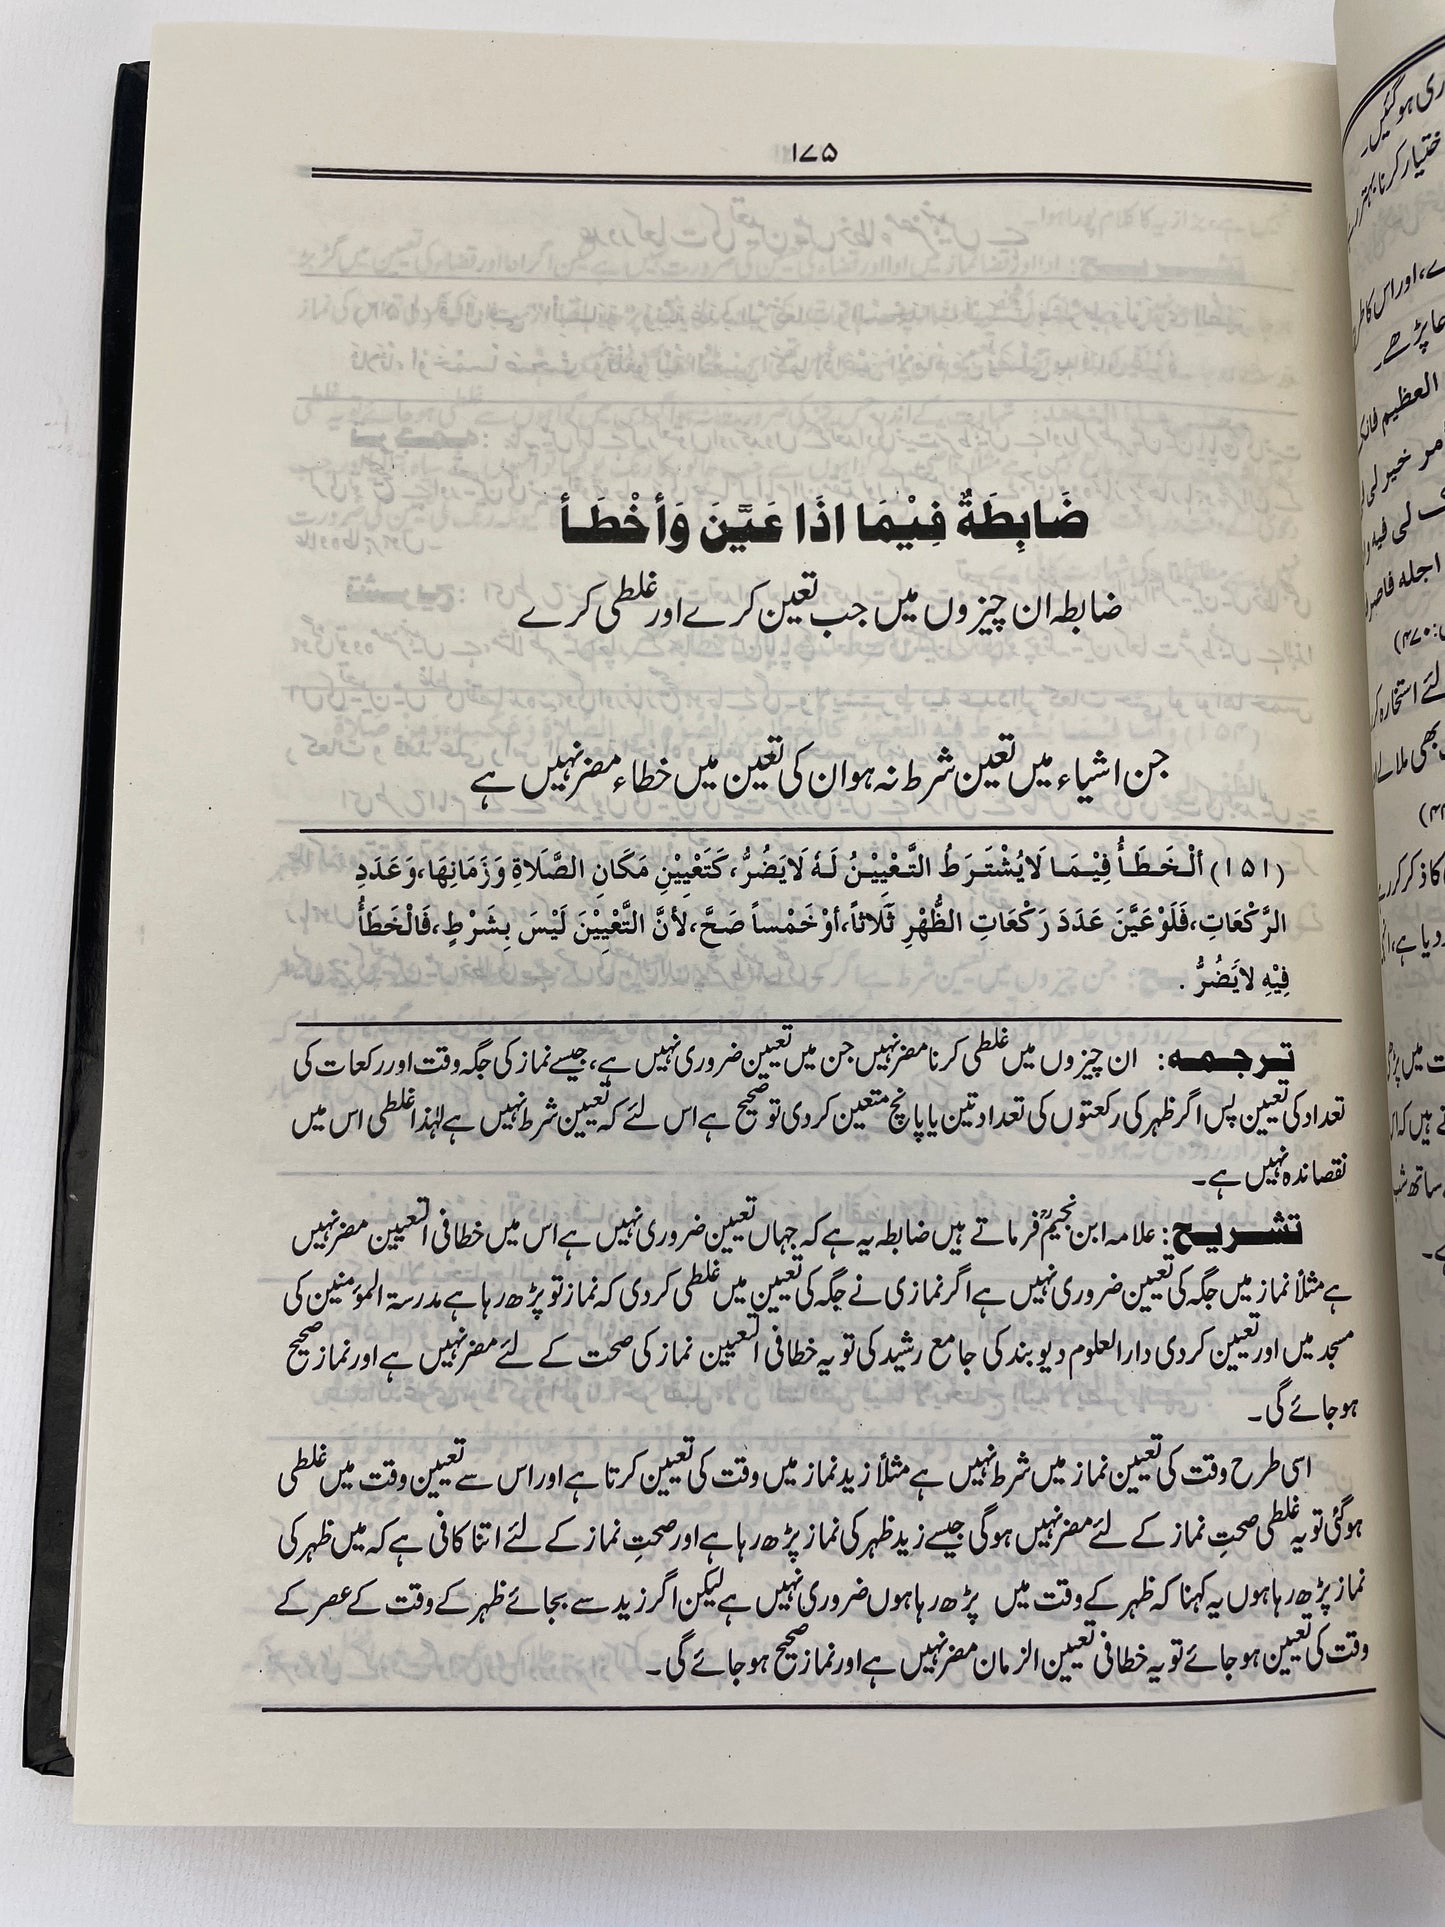 ۱۷۵
ضَابِطَةٌ فِيْمَا اذَا عَيَّنَ وَأخْطَأ
ضابطہ ان چیزوں میں جب تعین کرے اور غلطی کرے
جن اشیاء میں تعین شرط نہ ہو ان کی تعین میں خطاء مضر نہیں ہے
(۱۵۱) ألْخَطَأُ فِيْمَا لَايُشْتَرَطُ التَّعْيِيْنُ لَهٗ لَايَضُرُّ، كَتَعْيِيْنِ مَكَانِ الصَّلَاةِ وَزَمَانِهَا، وَعَدَدِ
الرَّكْعَاتِ، فَلَوْ عَيَّنَ عَدَدَ رَكْعَاتِ الظُّهْرِ ثَلَاثاً، أوْ خَمْسًا صَحَّ، لأنَّ التَّعْيِيْنَ لَيْسَ بِشَرْطٍ، فَالْخَطَأُ
فِيْهِ لايَضُرُّ .
ترجمہ: ان چیزوں میں غلطی کرنا مضر نہیں جن میں تعیین ضروری نہیں ہے، جیسے نماز کی جگہ وقت اور رکعات کی
تعداد کی تعیین پس اگر ظہر کی رکعتوں کی تعداد تین یا پانچ متعین کردی تو صحیح ہے اس لئے کہ تعیین شرط نہیں ہے لہٰذا غلطی اس میں
نقصاندہ نہیں ہے۔
تشریح: علامہ ابن نجیمؒ فرماتے ہیں ضابطہ یہ ہے کہ جہاں تعیین ضروری نہیں ہے اس میں خطا فی التعیین مضر نہیں
ہے مثلاً نماز میں جگہ کی تعیین ضروری نہیں ہے اگر نمازی نے جگہ کی تعیین میں غلطی کردی کہ نماز تو پڑھ رہا ہے مدرسۃ المؤمنین کی
مسجد میں اور تعیین کردی دارالعلوم دیوبند کی جامع رشید کی تو یہ خطا فی التعیین نماز کی صحت کے لئے مضر نہیں ہے اور نماز صحیح
ہو جائے گی۔
اسی طرح وقت کی تعیین نماز میں شرط نہیں ہے مثلاً زید نماز میں وقت کی تعیین کرتا ہے اور اس سے تعیین وقت میں غلطی
ہوگئی تو یہ غلطی صحتِ نماز کے لئے مضر نہیں ہوگی جیسے زید ظہر کی نماز پڑھ رہا ہے اور صحتِ نماز کے لئے اتنا کافی ہے کہ میں ظہر کی
نماز پڑھ رہا ہوں یہ کہنا کہ ظہر کے وقت میں پڑھ رہا ہوں ضروری نہیں ہے لیکن اگر زید سے بجائے ظہر کے وقت کے عصر کے
وقت کی تعیین ہو جائے تو یہ خطا فی تعیین الزمان مضر نہیں ہے اور نماز صحیح ہو جائے گی۔